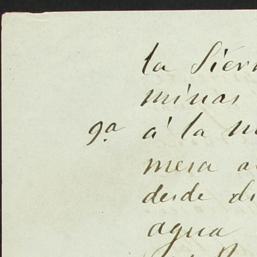 la Sier
minas
9ª á la m
mesa a
desde d
agua